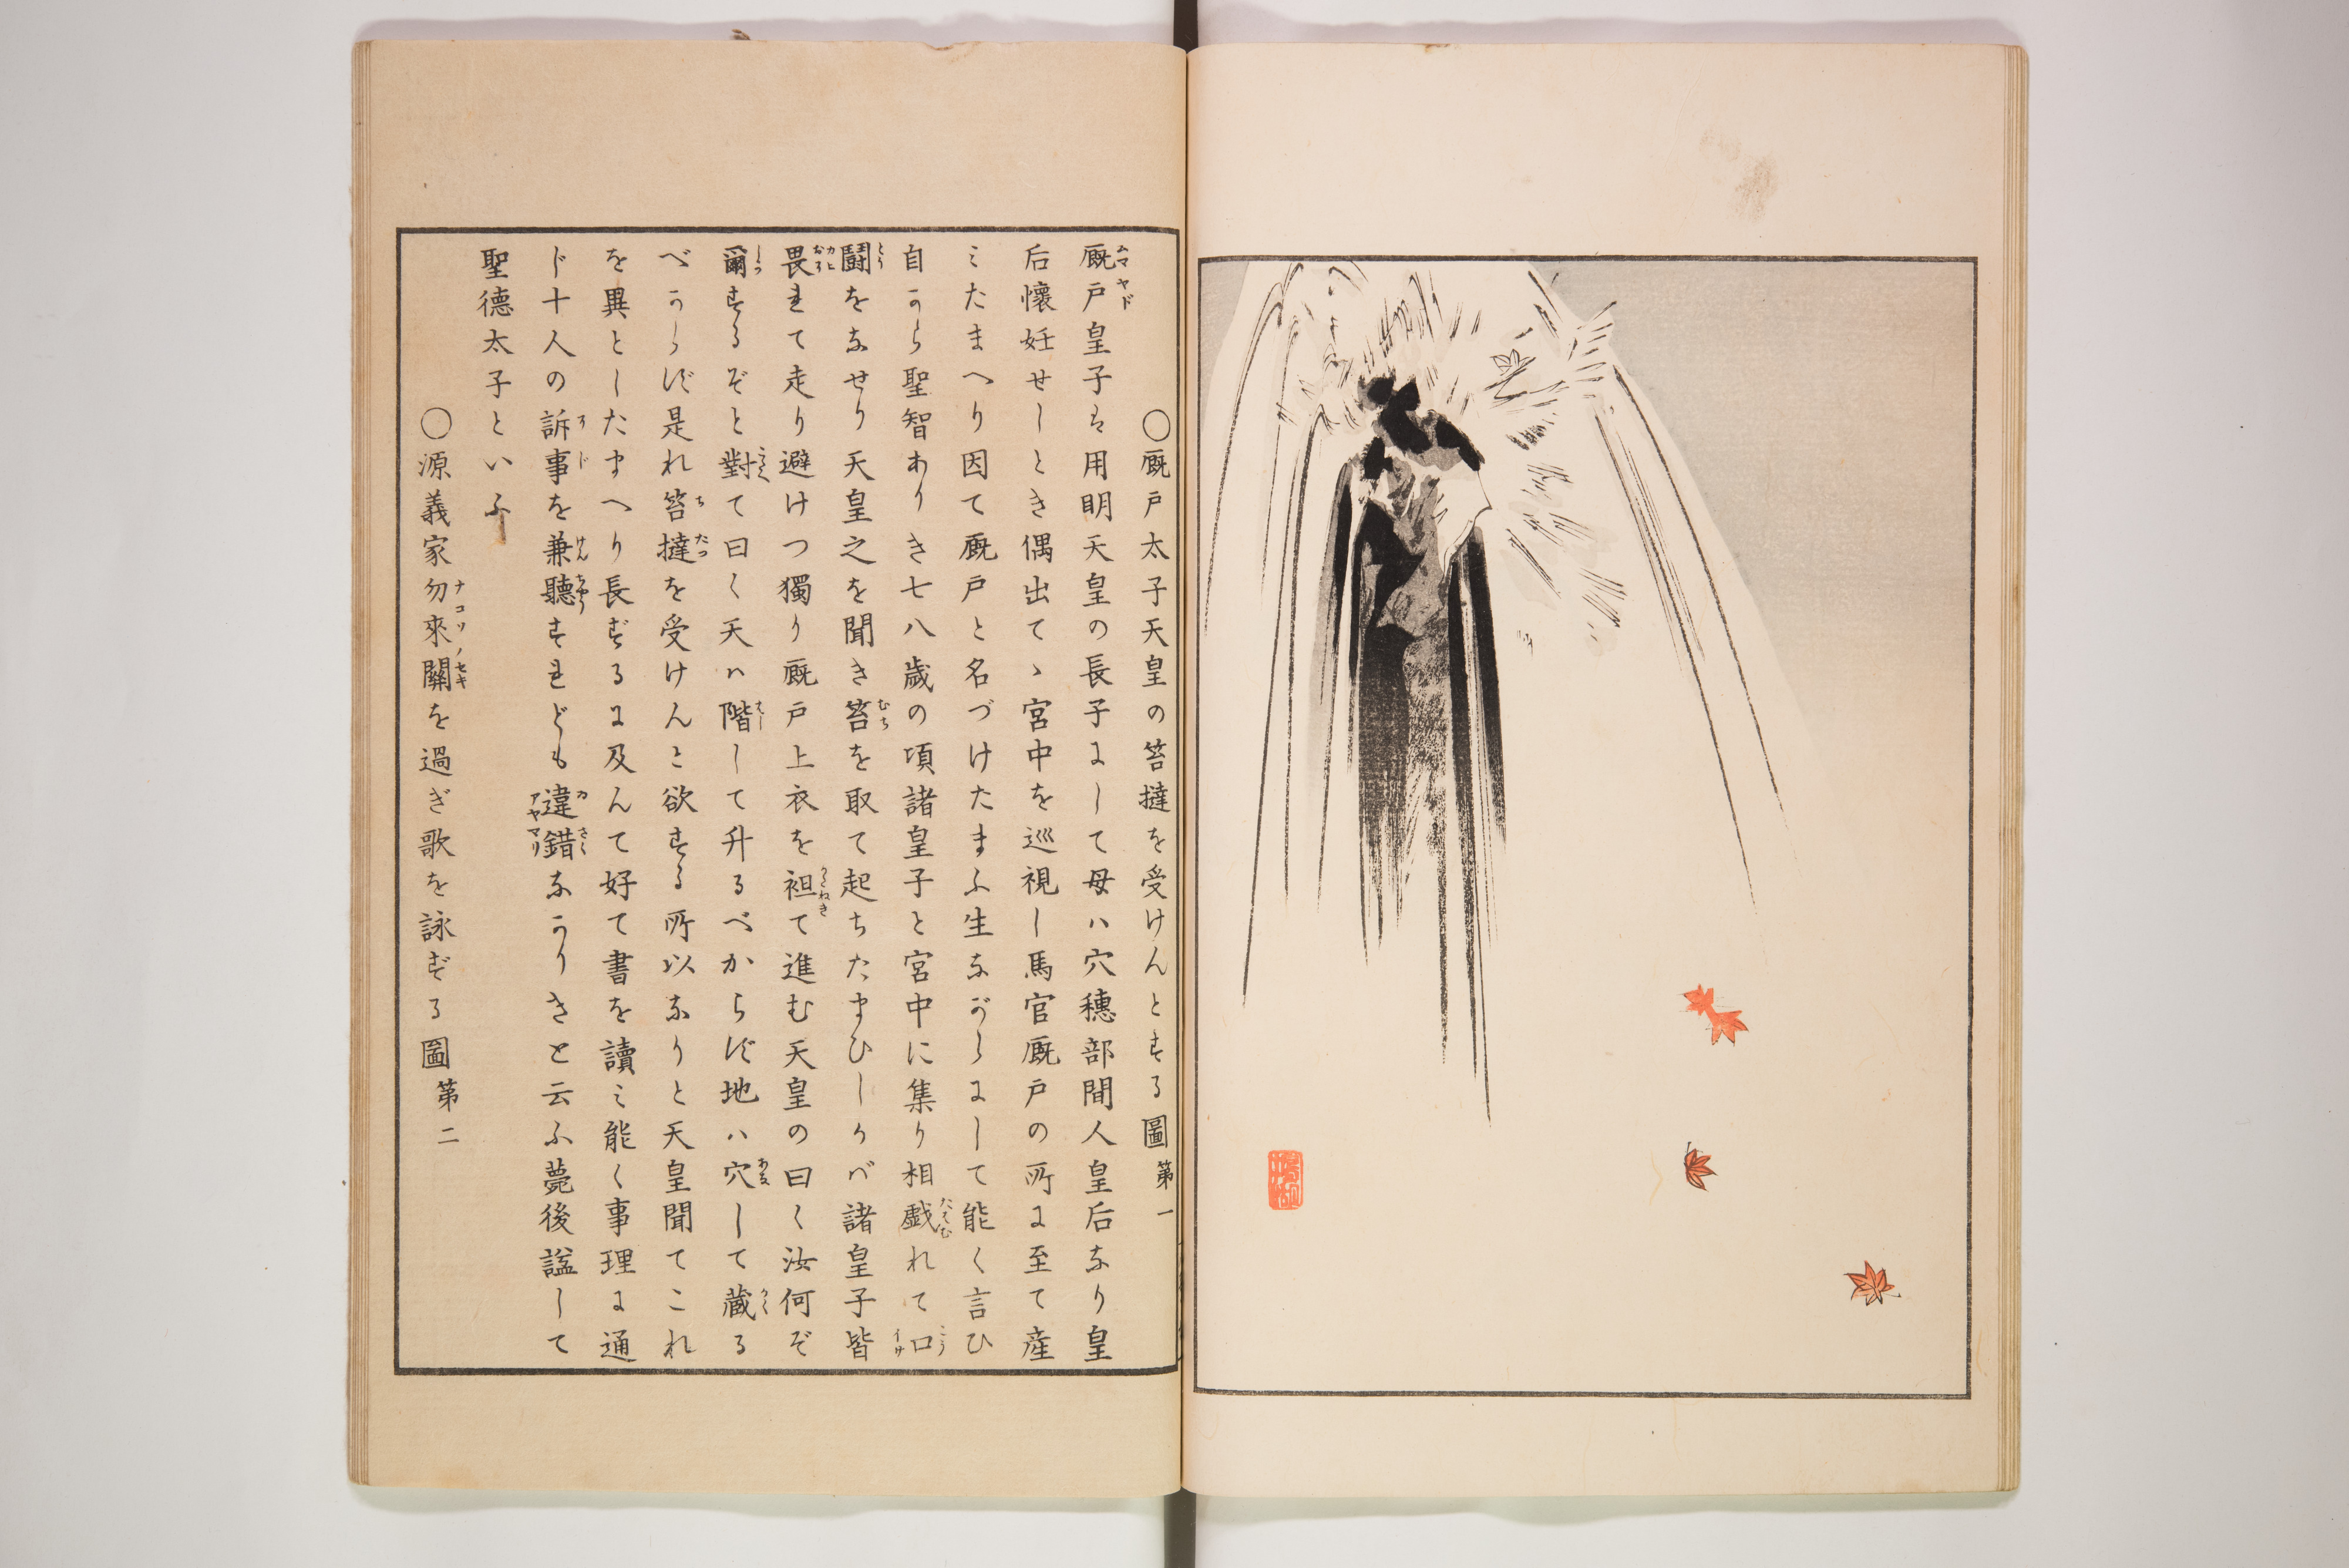 ○厩戸太子天皇の笞撻を受けんとする圖第一
厩戸皇子は用明天皇の長子にして母ハ穴穗部間人皇后なり皇
后懷妊せしとき偶出てゝ宮中を巡視し馬官厩戸の所に至て産
ミたまへり因て厩戸と名づけたまふ生ながらにして能く言ひ
自から聖智ありき七八歳の項諸皇子と宮中に集り相戯れて口
鬪をなせり天皇之を聞き笞を取て起ちたまひしかバ諸皇子皆
畏れて走り避けつ獨り厩戸上衣を袒て進む天皇の曰く汝何ぞ
爾するぞと對て曰く天ハ階して升るべからず地ハ穴して藏る
べからず是れ笞撻を受けんと欲する所以なりと天皇聞てこれ
を異としたまへり長ずるに及んて好て書を讀ミ能く事理に通
じ十人の訴事を兼聽すれども違錯なかりきと云ふ薨後諡して
聖德太子といふ
○源義家勿來關を過ぎ歌を詠ずる圖第二